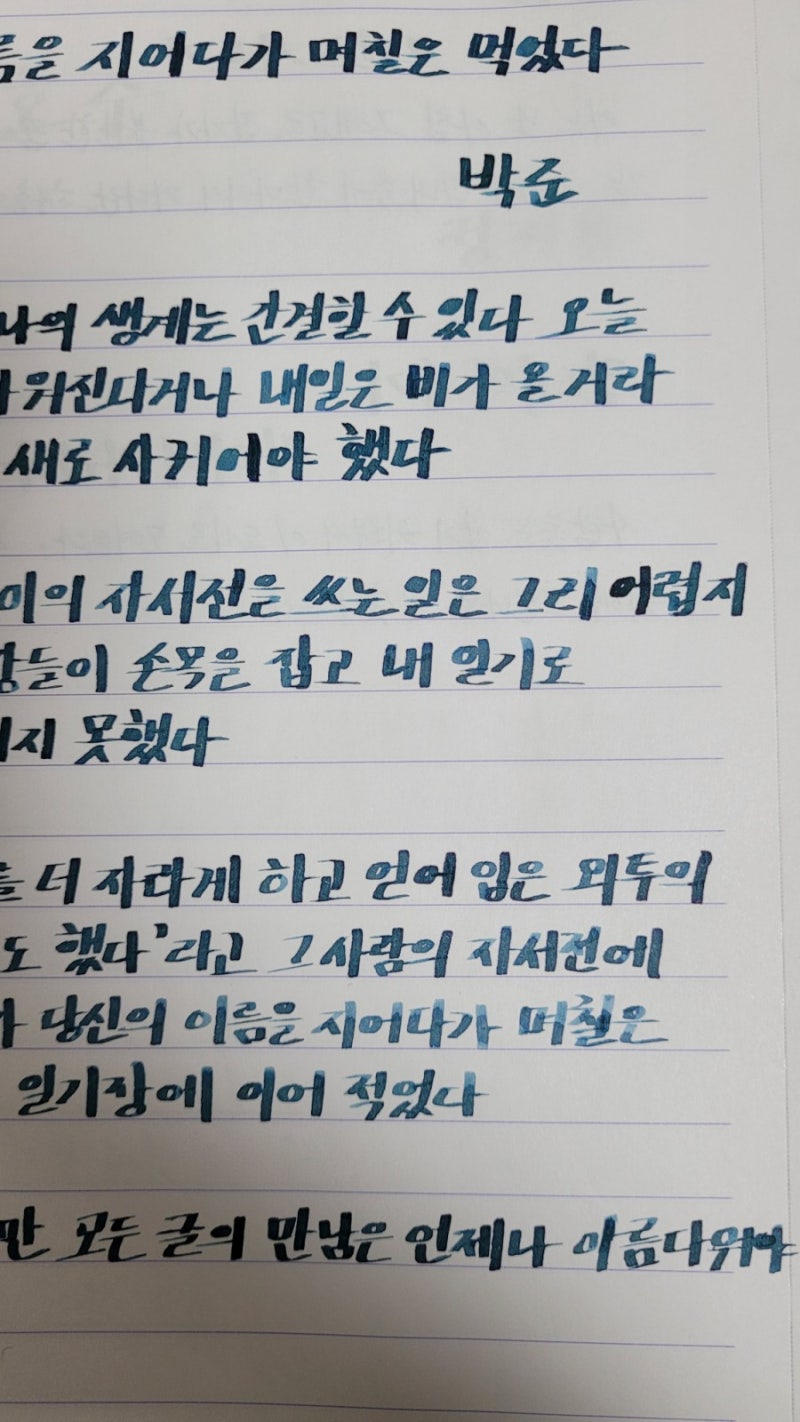 름을 지어다가 며칠은 먹었다
박준
나의 생계는 간결할 수 있다 오늘
워진다거나 내일은 비가 올거라
새로 사귀어야 했다
이의 자서전을 쓰는 일은 그리 어렵지
들이 손목을 잡고 내 일기로
지 못했다
더 자라게 하고 얻어 입은 외투의
도 했다'라고 그 사람의 자서전에
당신의 이름을 지어다가 며칠은
일기장에 이어 적었다
만 모든 글의 만남은 언제나 아름다워야